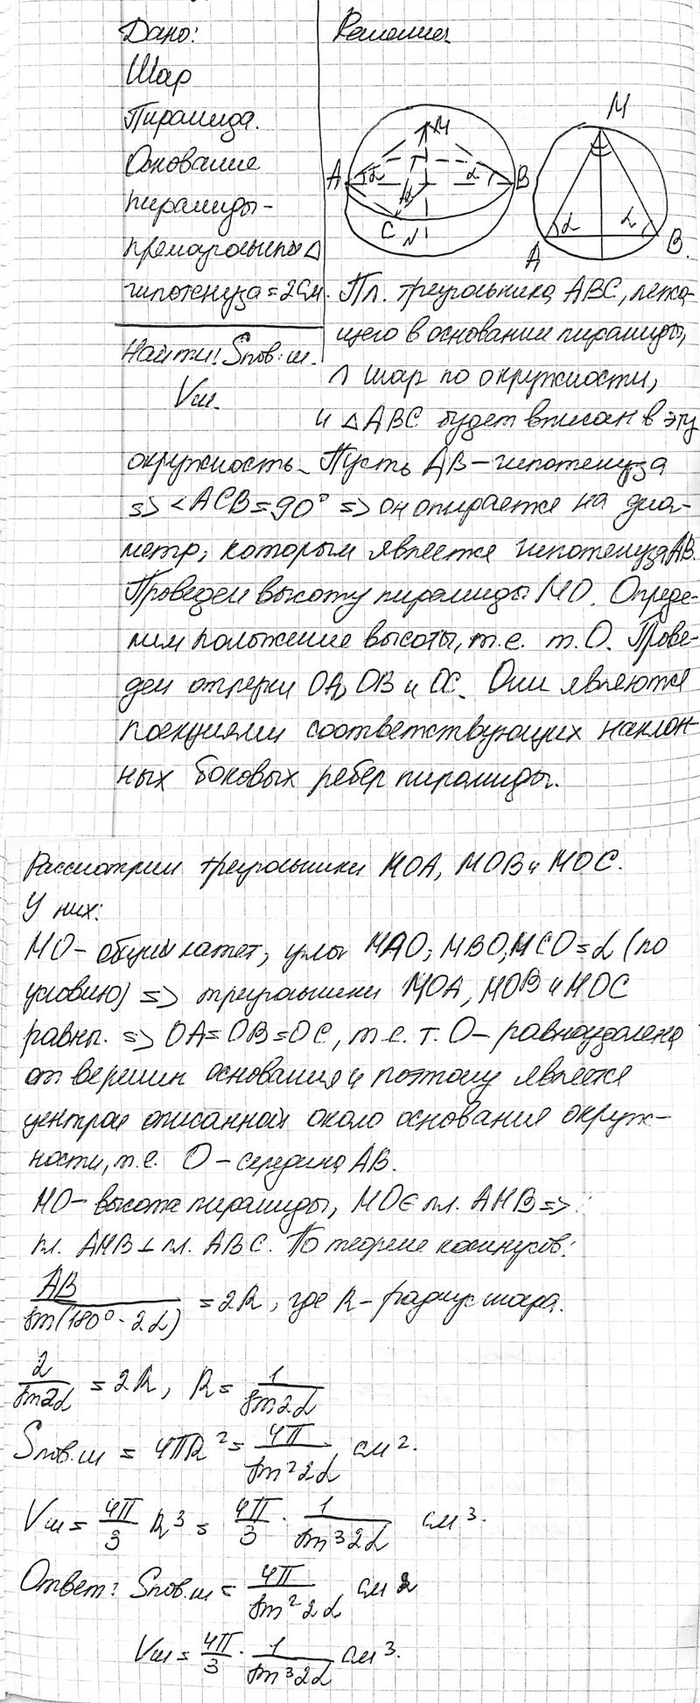 Дано:
Решение
Шар
Пирамида.
Основание
пирамиды-
прямоугольный Δ
гипотенуза = 2см.
Найти: Sпов.ш.
Vш.
M
A
α
α
B
C
N
M
α
α
A
B.
Пл. треугольника ABC, лежа-
щего в основании пирамиды,
∩ шар по окружности,
и ΔABC будет вписан в эту
окружность. Пусть AB - гипотенуза
=> <ACB = 90° => он опирается на диа-
метр, которым является гипотенуза AB.
Проведем высоту пирамиды MO. Опреде-
лим положение высоты, т.е. т.O. Прове-
дем отрезки OA, OB и OC. Они являются
поекциями соответствующих наклон-
ных боковых ребер пирамиды.
Рассмотрим треугольники MOA, MOB и MOC.
У них:
MO - общий катет, углы MAO, MBO, MCO = α (по
условию) => треугольники MOA, MOB и MOC
равны. => OA = OB = OC, т.е. т. O - равноудалена
от вершин основания и поэтому является
центром описанной около основания окруж-
ности, т.е. O - середина AB.
MO - высота пирамиды, MO ∈ пл. AMB =>
пл. AMB ⊥ пл. ABC. По теореме косинусов:
AB / sin(180° - 2α) = 2R, где R - радиус шара.
2 / sin2α = 2R, R = 1 / sin2α
Sпов.ш = 4πR² = 4π / sin²2α см².
Vш = 4π/3 R³ = 4π/3 · 1 / sin³2α см³.
Ответ: Sпов.ш = 4π / sin²2α см²
Vш = 4π/3 · 1 / sin³2α см³.